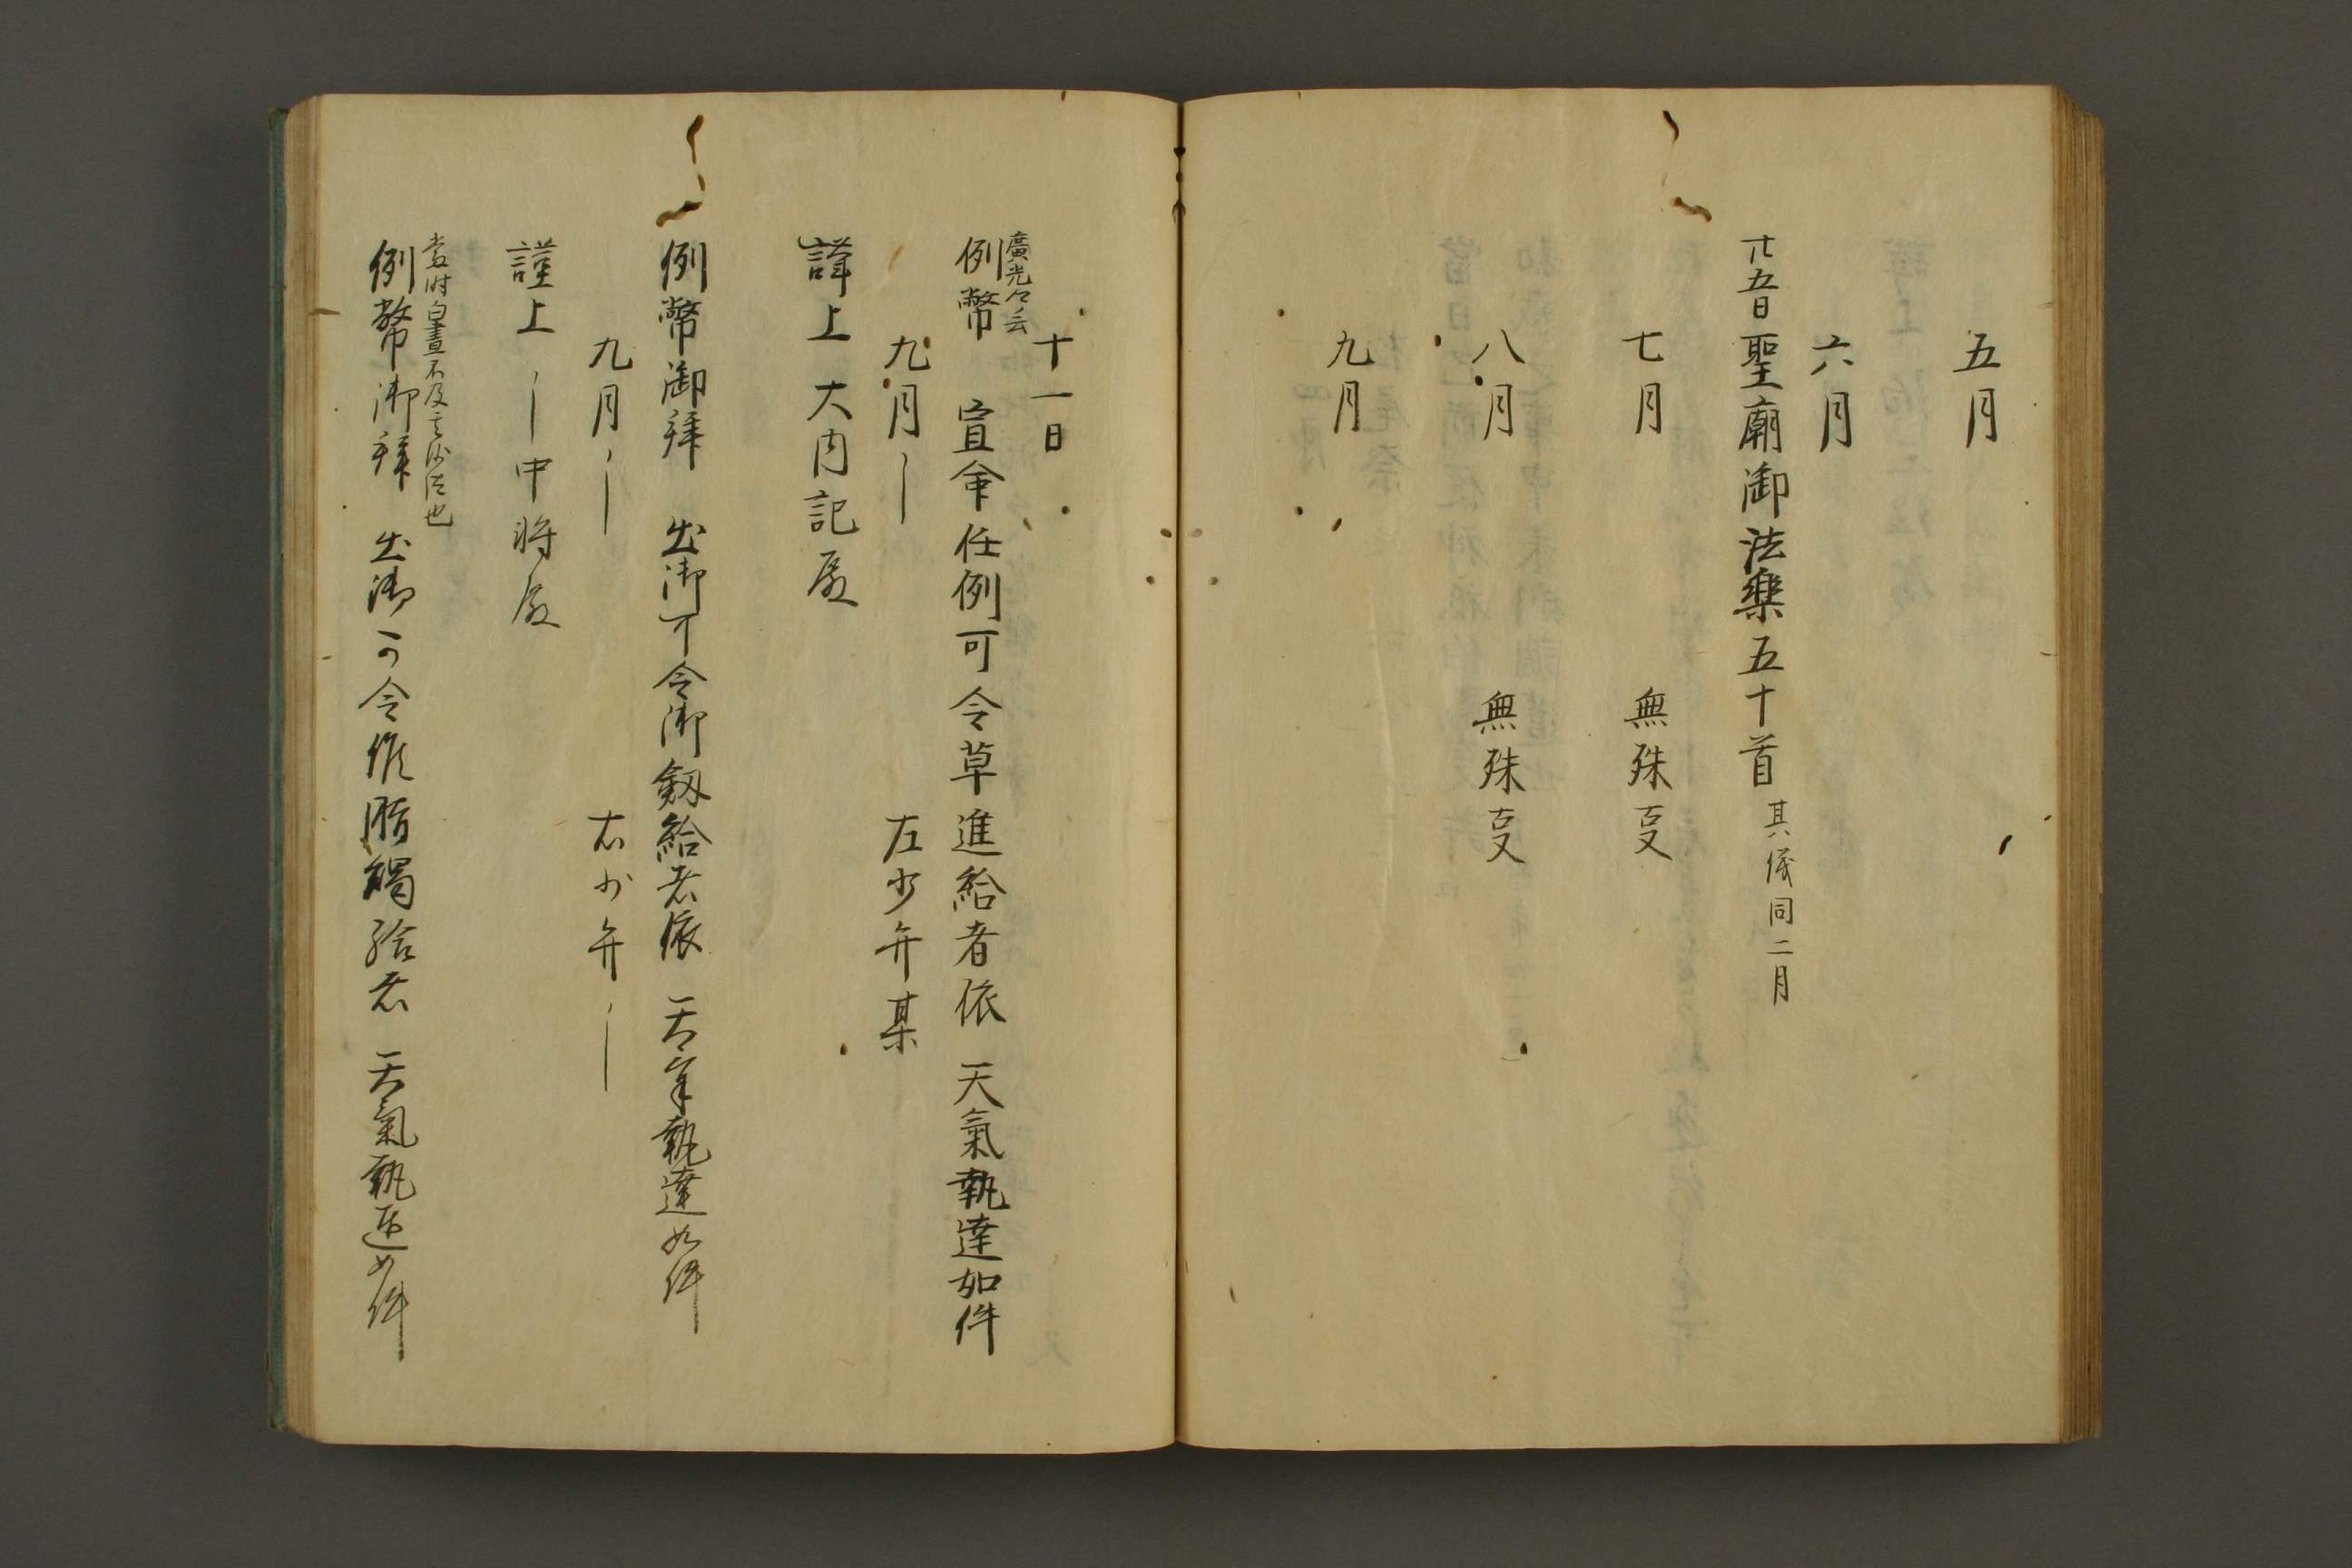 五月
六月
廿五日聖廟御法樂五十首 其儀同二月
七月 無殊叓
八月 無殊叓
九月
十一日
廣光々云
例幣 宣命任例可令草進給者依 天氣執達如件
九月〡 左少弁某
謹上 大内記殿
例幣御拜 出御可令御劔給者依 天氣執達如件
九月〡 右少弁〡
謹上〡中将殿
當時白晝不及其沙汰也
例幣御拜 出御可令候脂燭給者 天氣執達如件